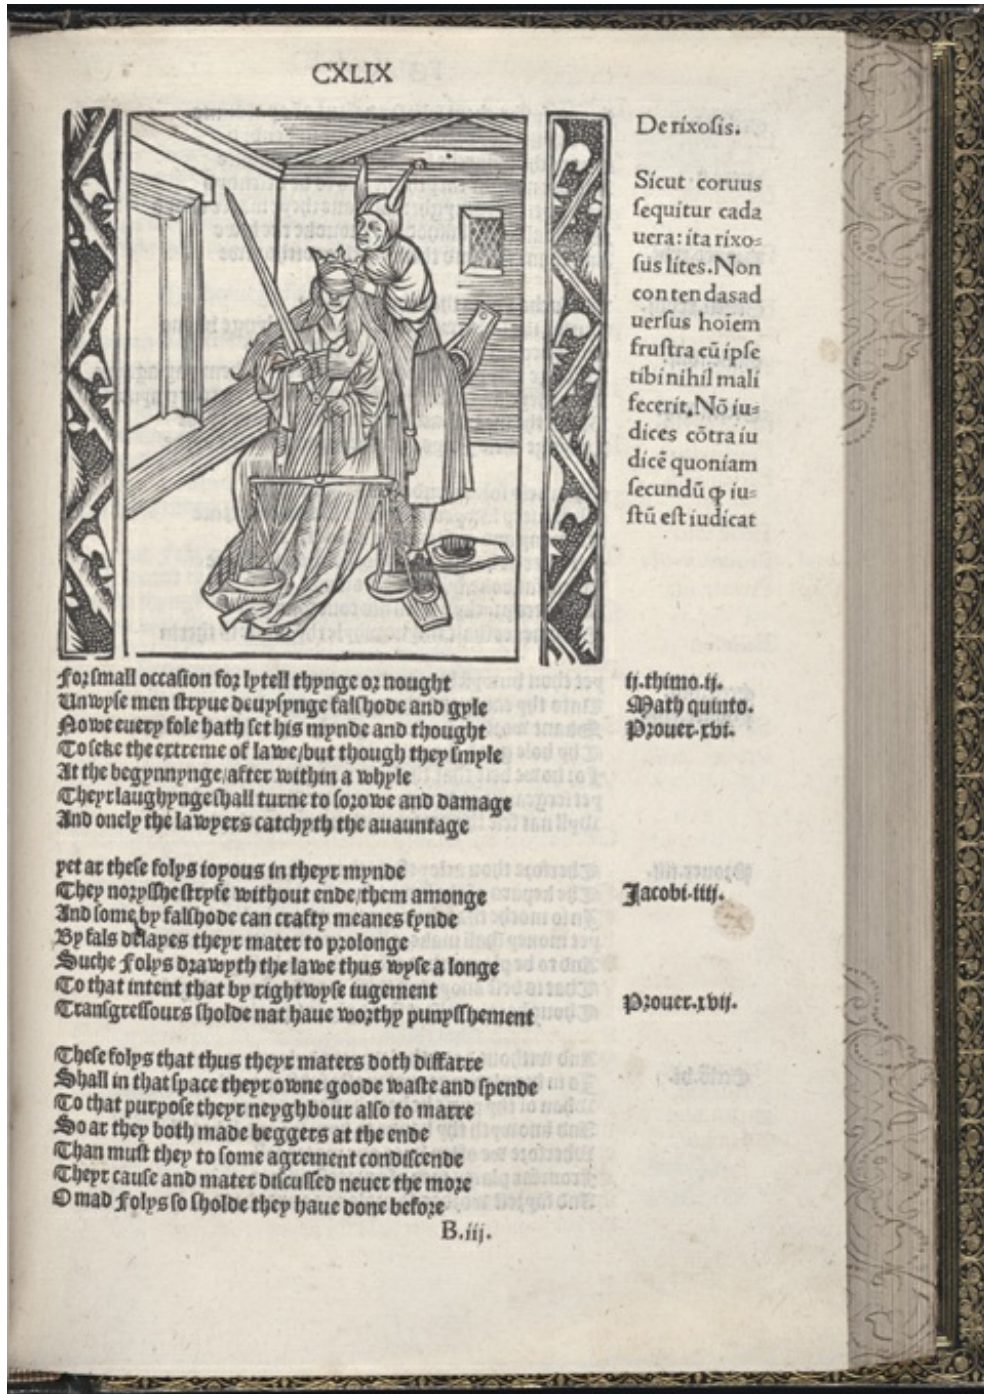 CXLIX
De rixosis.
Sicut coruus
sequitur cada
uera: ita rixo=
sus lites. Non
contendas ad
uersus hoīem
frustra cū ipse
tibi nihil mali
fecerit. Nō iu=
dices cōtra iu
dicē quoniam
secundū ꝙ iu=
stū est iudicat
For small occasion for lytell thynge or nought
Unwyse men stryue deuysynge falshode and gyle
Nowe euery fole hath set his mynde and thought
To seke the extreme of lawe/but though they smyle
At the begynnynge/after within a whyle
Theyr laughynge shall turne to sorowe and damage
And onely the lawyers catchyth the auauntage
ij.thimo.ij.
Math quinto.
Prouer.xvi.
yet ar these folys ioyous in theyr mynde
They norysshe stryfe without ende them amonge
And some by falshode can crafty meanes fynde
By fals delayes theyr mater to prolonge
Suche Folys drawyth the lawe thus wyse a longe
To that intent that by rightwyse iugement
Transgressours sholde nat haue worthy punysshement
Jacobi.iiij.
Prouer.xvij.
These folys that thus theyr maters doth diffarre
Shall in that space theyr owne goode waste and spende
To that purpose theyr neyghbour also to marre
So ar they both made beggers at the ende
Than must they to some agrement condiscende
Theyr cause and mater discussed neuer the more
O mad Folys so sholde they haue done before
B.iij.